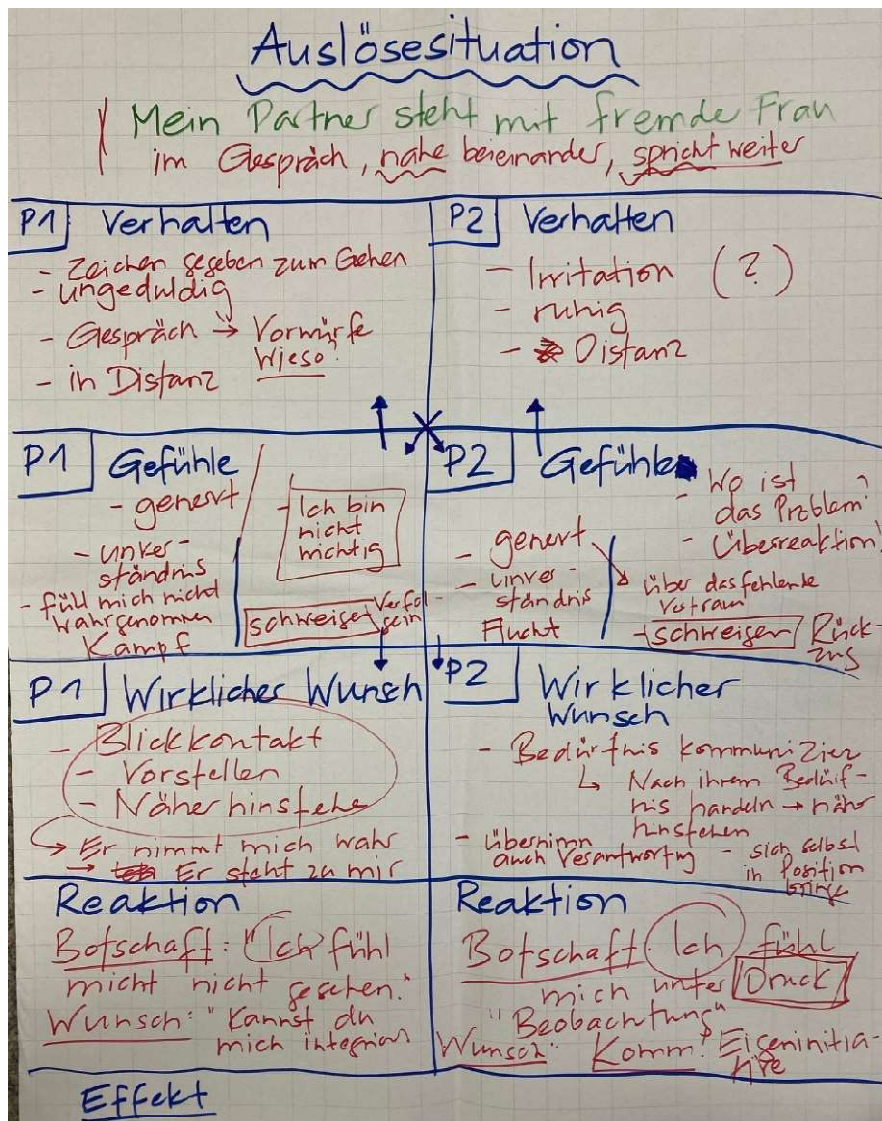 Auslösesituation
Mein Partner steht mit fremde Frau
im Gespräch, nahe beieinander, spricht weiter
P1 Verhalten
- Zeichen gegeben zum Gehen
- ungeduldig
- Gespräch → Vorwürfe
Wieso?
- in Distanz
P2 Verhalten
- Irritation (?)
- ruhig
- Distanz
P1 Gefühle
- genervt
- unver-
ständnis
- fühl mich nicht
wahrgenommen
Kampf
- Ich bin
nicht
wichtig
schweigen
P2 Gefühle
- Wo ist
das Problem?
- Überreaktion!
- genervt
- unver-
ständnis
Flucht
über das fehlente
Vertraun
- schweigen Rück-
zug
P1 Wirklicher Wunsch
- Blickkontakt
- Vorstellen
- Näher hinstehe
→ Er nimmt mich wahr
→ Er steht zu mir
P2 Wirklicher
Wunsch
- Bedürfnis kommunizier
↳ Nach ihrem Bedürf-
nis handeln → näher
hinstehen
- übernimm
auch Verantwortung
- sich selbst
in Position
bringe
Reaktion
Botschaft: "Ich fühl
micht nicht gesehen."
Wunsch: "Kannst du
mich integrieren
Reaktion
Botschaft: Ich fühl
mich unter Druck
"Beobachtung"
Wunsch: Komm! Eigeninitia-
tive
Effekt